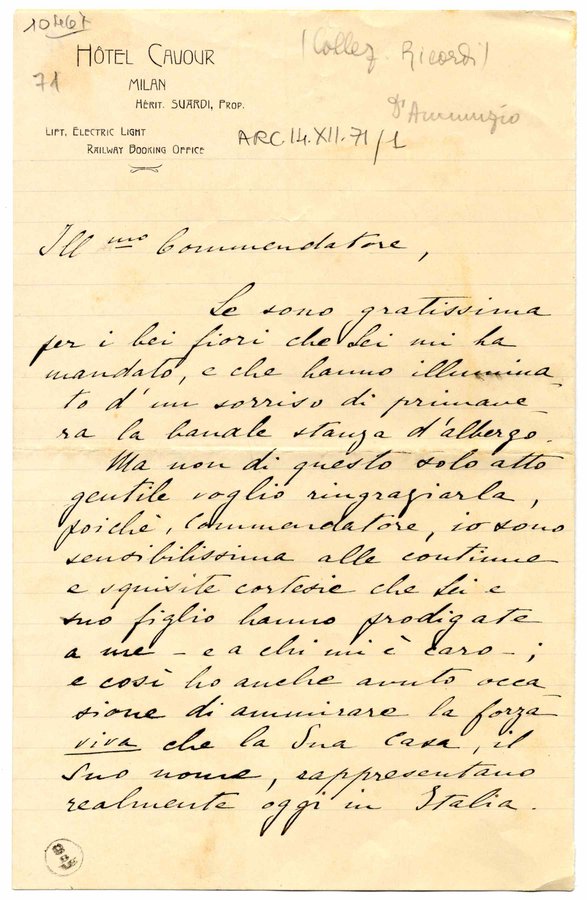 10467
HÔTEL CAVOUR
(Collez. Ricordi)
71
MILAN
HÉRIT. SUARDI, PROP.
D'Annunzio
LIFT, ELECTRIC LIGHT
RAILWAY BOOKING OFFICE
ARC.14.XII.71/1
Ill mo Commendatore,
Le sono gratissima
per i bei fiori che Lei mi ha
mandato, e che hanno illumina-
to d'un sorriso di primave-
ra la banale stanza d'albergo.
Ma non di questo solo atto
gentile voglio ringraziarla,
poichè, Commendatore, io sono
sensibilissima alle continue
e squisite cortesie che Lei e
suo figlio hanno prodigate
a me - e a chi mi è caro - ;
e così ho anche avuto occa
sione di ammirare la forza
viva che la Sua Casa, il
Suo nome, rappresentano
realmente oggi in Italia.